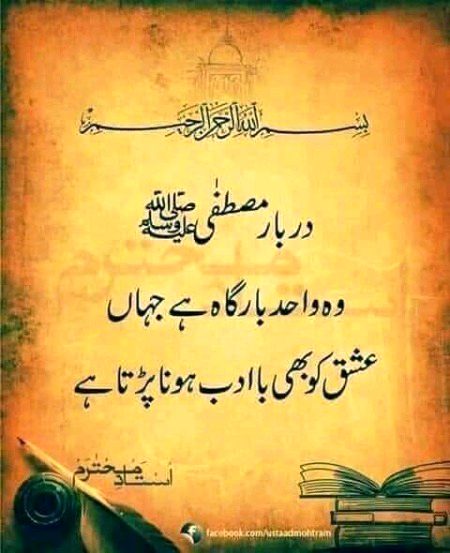 بسم اللہ الرحمن الرحیم
دربار مصطفٰی ﷺ
وہ واحد بارگاہ ہے جہاں
عشق کو بھی با ادب ہونا پڑتا ہے
استادِ محترم
استاد محترم
facebook.com/ustaadmohtram